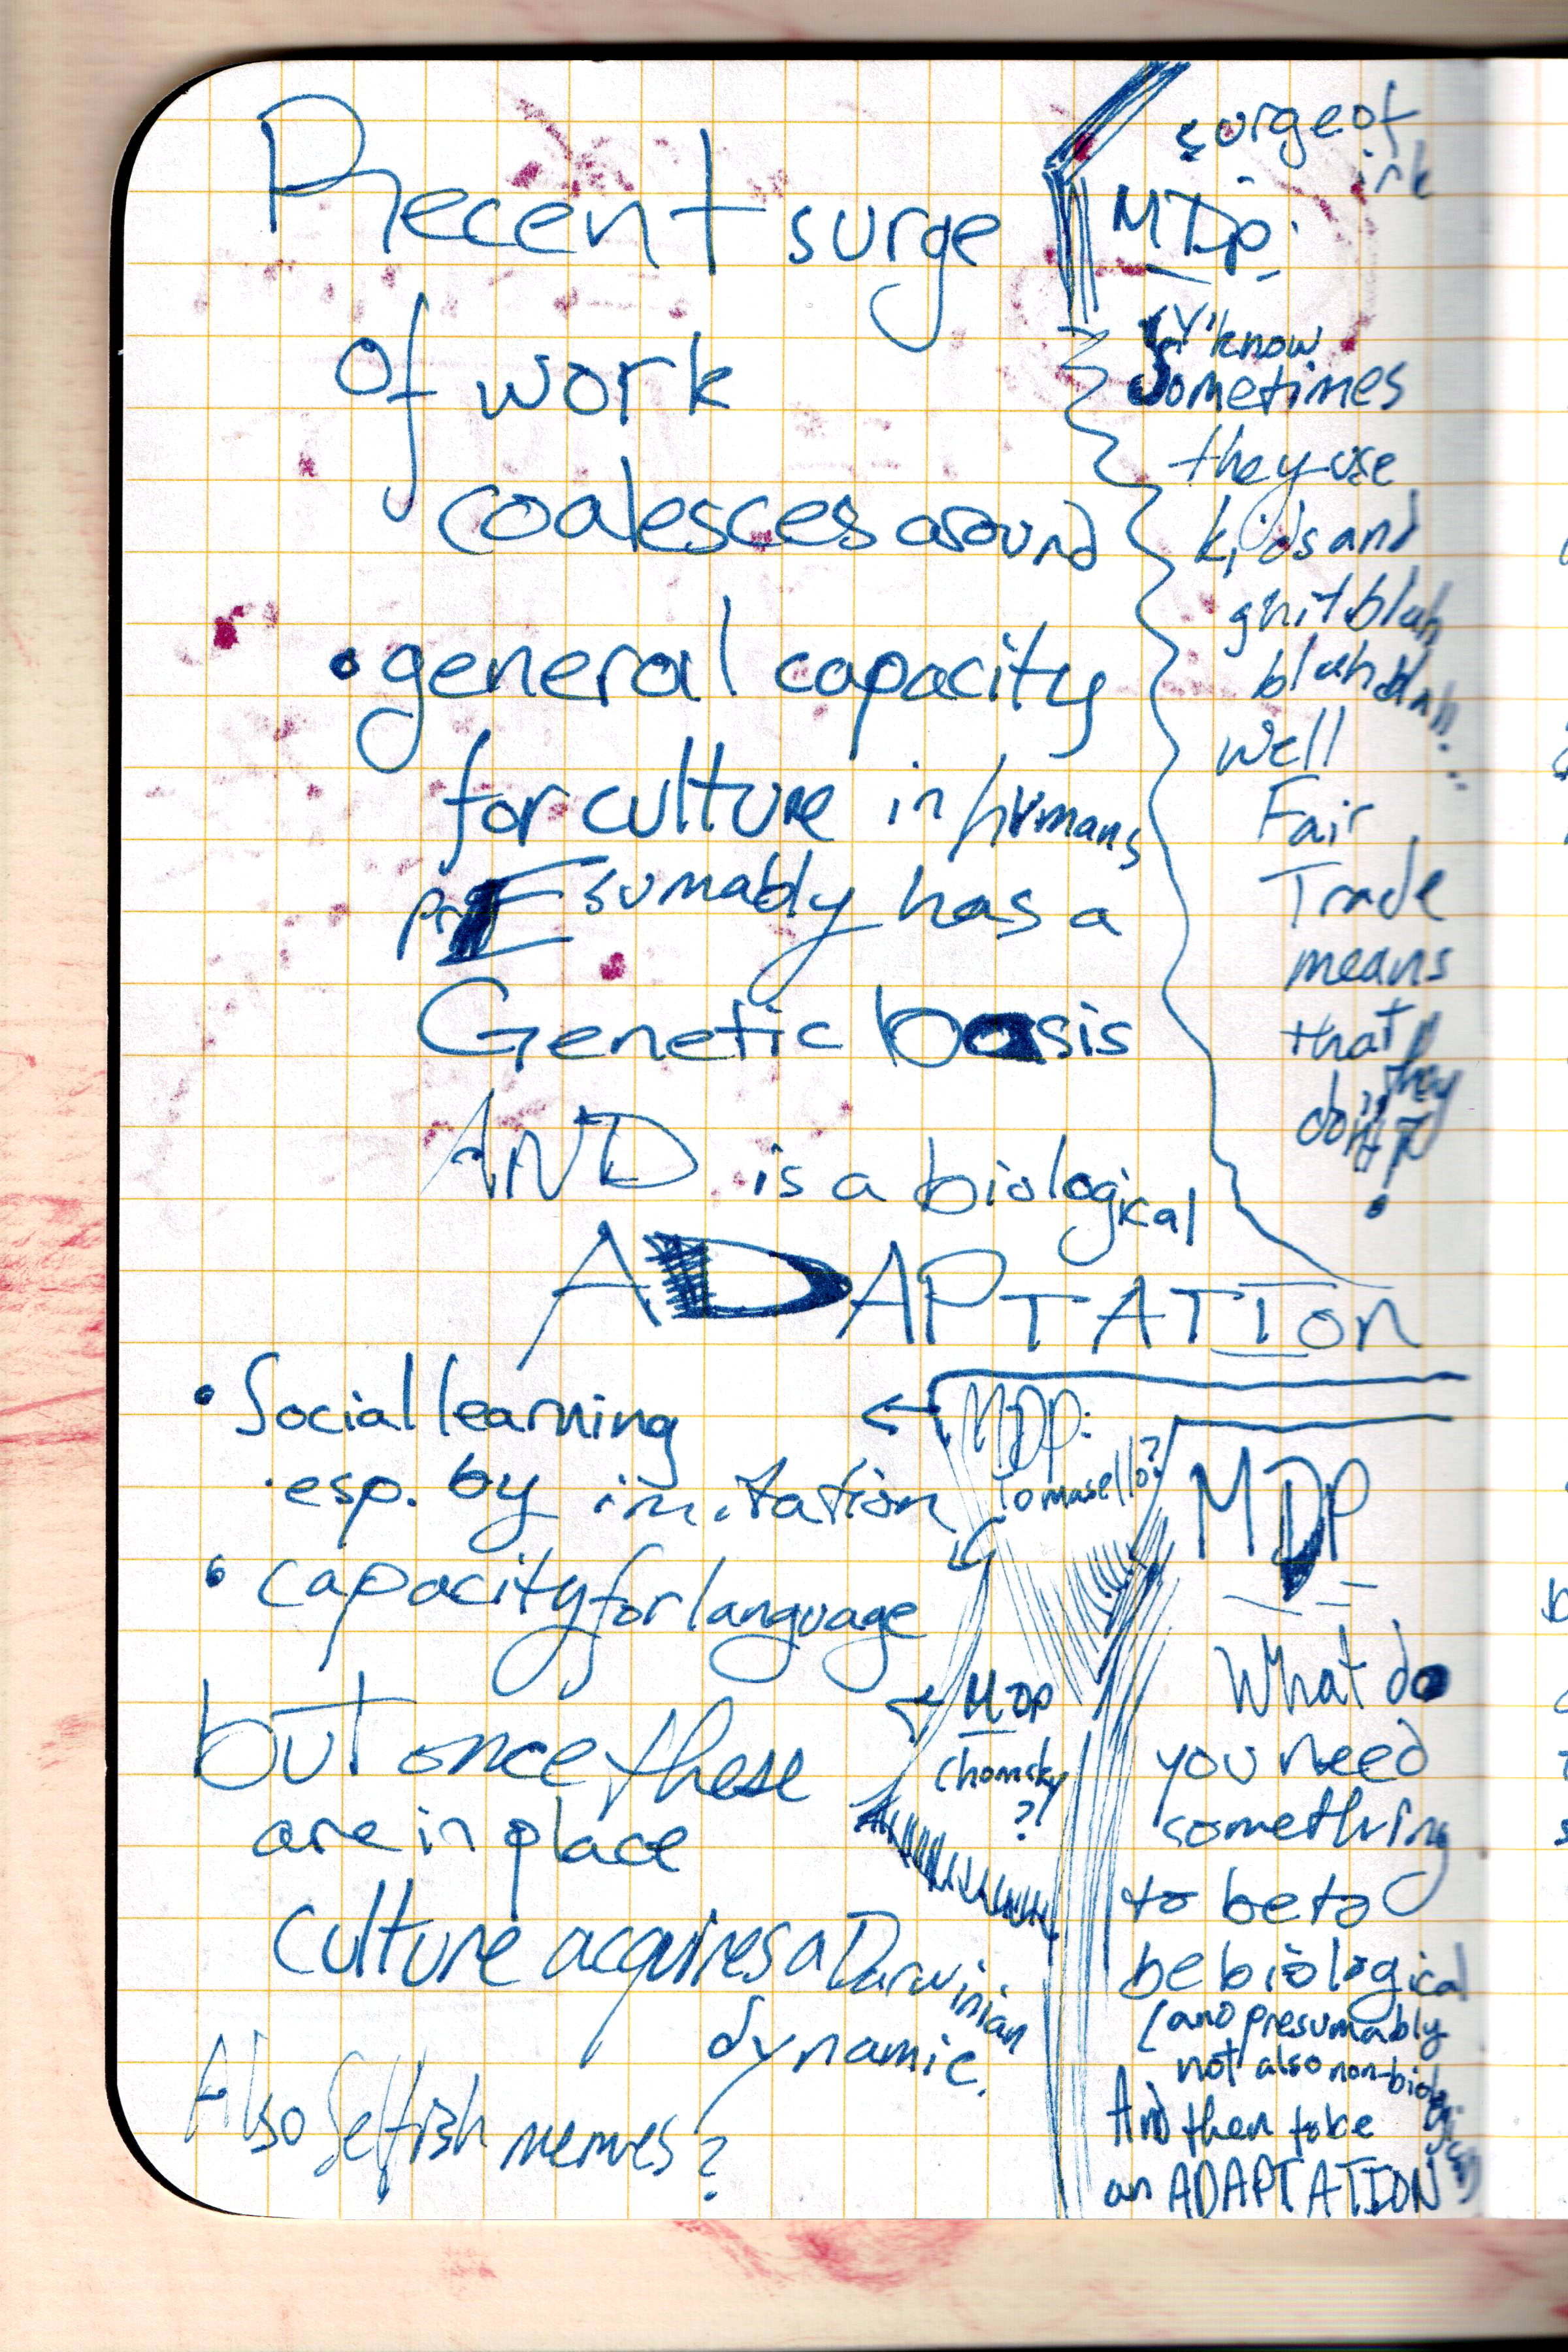 Recent surge
of work
coalesces around
• general capacity
for culture in humans
prEsumably has a
Genetic basis
AND is a biological
ADAPTATION
• Social learning
· esp. by imitation
• capacity for language
but once these
are in place
culture acquires a Darwinian
dynamic.
Also Selfish memes?
surge of
irk
MDP:
Y'know
Sometimes
they use
kids and
blah
blah blah...
Well
Fair
Trade
means
that they
do it
MDP:
Tomasello?
MDP
Chomsky
?!
MDP
What do
you need
something
to be to
be biological
(and presumably
not also non-biological)
And then take
an ADAPTATION